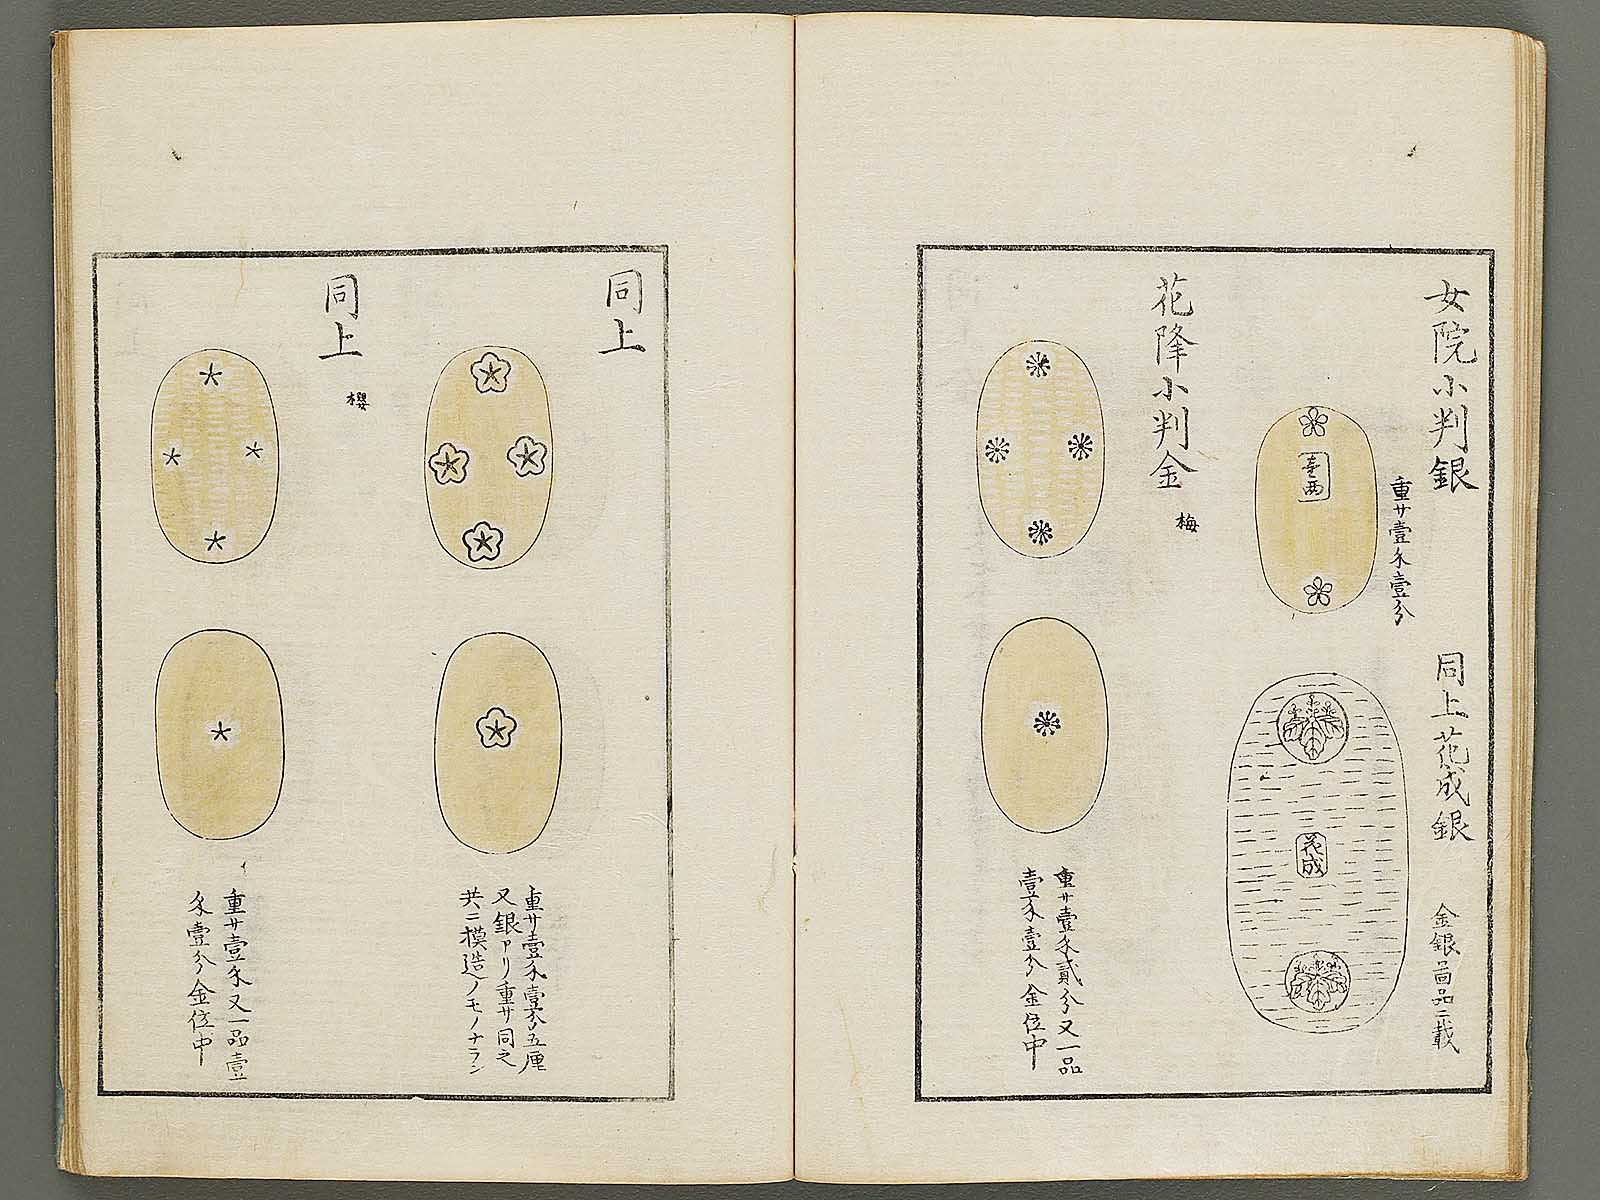 女院小判銀
重サ壹匁壹分
壹両
同上花成銀
金銀圖品ニ載
花成
花降小判金
梅
重サ壹匁貳分又一品
壹匁壹分金位中
同上
重サ壹匁壹分五厘
又銀アリ重サ同之
共ニ模造ノモノナラン
同上
櫻
重サ壹匁又一品壹
匁壹分金位中